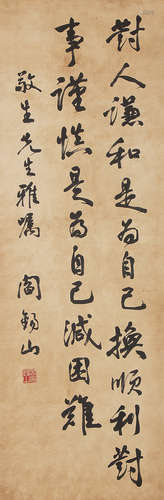 對人謙和是為自己換順利對
事謹慎是為自己減困難
敬生先生雅嘱 閻錫山